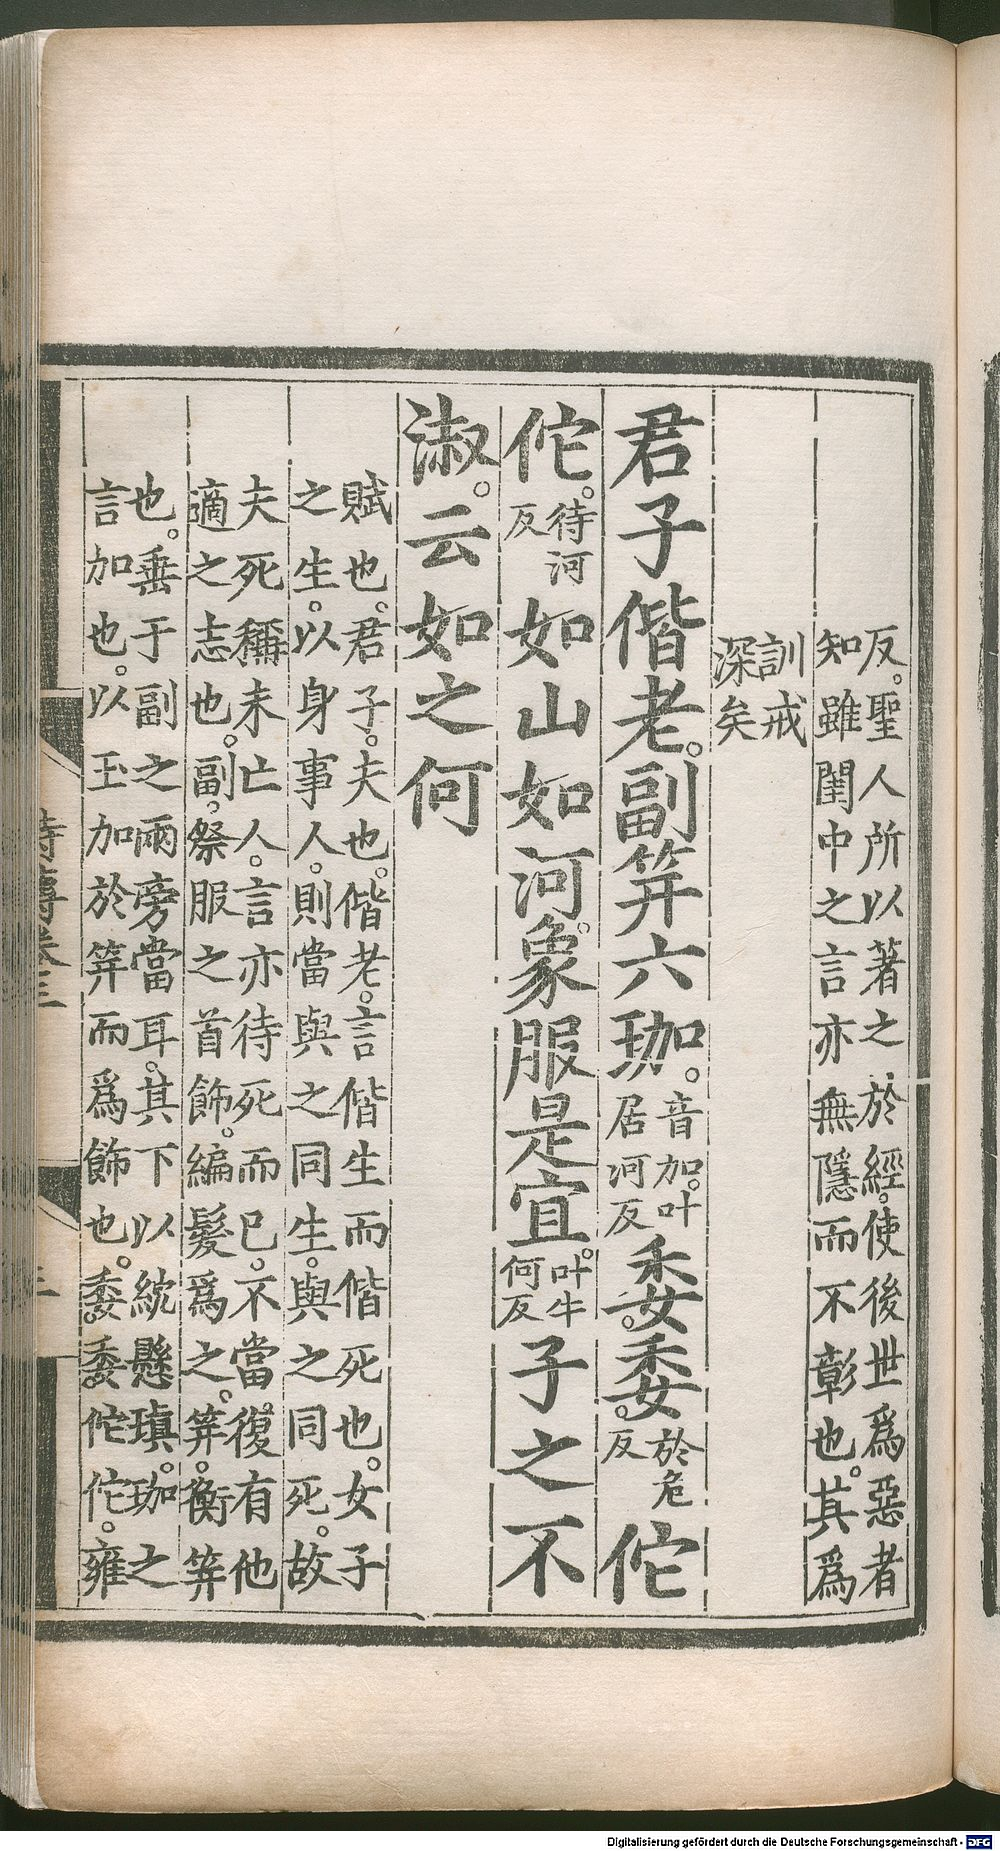 反。聖人所以著之於經。使後世爲惡者
知雖閨中之言亦無隱而不彰也。其爲
訓戒
深矣
君子偕老。副笄六珈。音加。叶居河反委。委。於危反佗
佗。待河反如山如河。象服是宜。叶牛何反子之不
淑。云如之何
賦也。君子。夫也。偕老。言偕生而偕死也。女子
之生。以身事人。則當與之同生。與之同死。故
夫死稱未亡人。言亦待死而已。不當復有他
適之志也。副。祭服之首飾。編髮爲之。笄。衡笄
也。垂于副之兩旁當耳。其下以紞懸瑱。珈之
言加也。以玉加於笄而爲飾也。委。委佗佗。雍
詩傳卷三
Digitalisierung gefördert durch die Deutsche Forschungsgemeinschaft - DFG